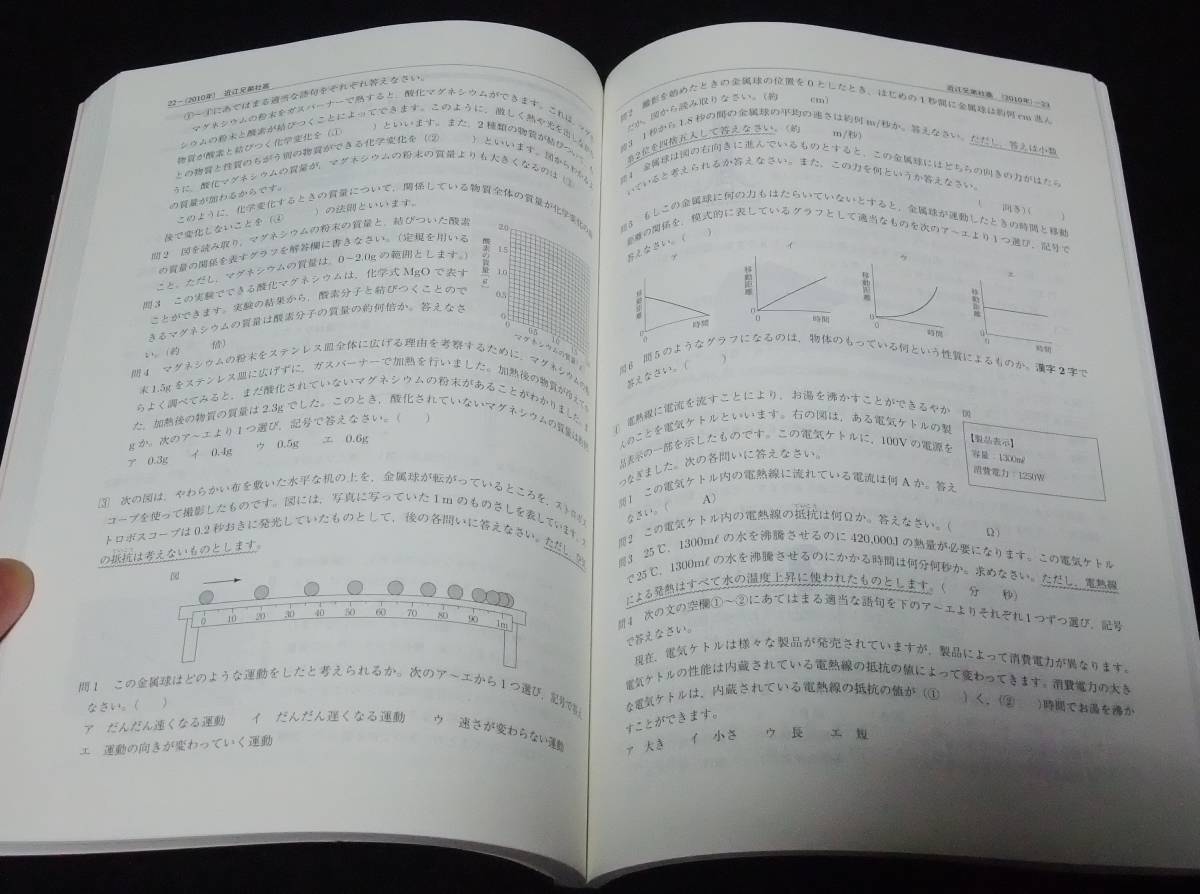 22－(2010年) 近江兄弟社高
①～④にあてはまる適当な語句をそれぞれ答えなさい。
マグネシウムの粉末をガスバーナーで熱すると、酸化マグネシウムができます。これは、マグネ
シウムの粉末と酸素が結びつくことによってできます。このように、激しく熱や光を出しながら
物質が酸素と結びつく化学変化を(① )といいます。また、2種類の物質が結びついて、も
との物質と性質のちがう別の物質ができる化学変化を(② )といいます。図からわかるよ
うに、酸化マグネシウムの質量が、マグネシウムの粉末の質量よりも大きくなるのは(③ )
の質量が加わるからです。
このように、化学変化するときの質量について、関係している物質全体の質量が化学変化の前
後で変化しないことを(④ )の法則といいます。
問2 図を読み取り、マグネシウムの粉末の質量と、結びついた酸素
の質量の関係を表すグラフを解答欄に書きなさい。(定規を用いる
こと。ただし、マグネシウムの質量は、0～2.0gの範囲とします。)
問3 この実験でできる酸化マグネシウムは、化学式MgOで表す
ことができます。実験の結果から、酸素分子と結びつくことので
きるマグネシウムの質量は酸素分子の質量の約何倍か。答えなさ
い。(約 倍)
酸素の質量〔g〕
2.0
1.5
1.0
0.5
0
0 0.5 1.0
マグネシウムの質量
問4 マグネシウムの粉末をステンレス皿全体に広げる理由を考察するために、マグネシウムの粉
末1.5gをステンレス皿に広げずに、ガスバーナーで加熱を行いました。加熱後の物質が冷えてか
らよく調べてみると、まだ酸化されていないマグネシウムの粉末があることがわかりました。ま
た、加熱後の物質の質量は2.3gでした。このとき、酸化されていないマグネシウムの質量は約何
gか。次のア～エより1つ選び、記号で答えなさい。( )
ア 0.3g イ 0.4g ウ 0.5g エ 0.6g
3 次の図は、やわらかい布を敷いた水平な机の上を、金属球が転がっているところを、ストロボス
コープを使って撮影したものです。図には、写真に写っていた1mのものさしを表しています。ス
トロボスコープは0.2秒おきに発光していたものとして、後の各問いに答えなさい。ただし、空気
の抵抗は考えないものとします。
図
0 10 20 30 40 50 60 70 80 90 1m
問1 この金属球はどのような運動をしたと考えられるか。次のア～エから1つ選び、記号で答え
なさい。( )
ア だんだん速くなる運動 イ だんだん遅くなる運動 ウ 速さが変わらない運動
エ 運動の向きが変わっていく運動
近江兄弟社高 (2010年)－23
問2 撮影を始めたときの金属球の位置を0としたとき、はじめの1秒間に金属球は約何cm進ん
だか、図から読み取りなさい。(約 cm)
問3 1秒から1.8秒の間の金属球の平均の速さは約何m/秒か。答えなさい。ただし、答えは小数
第2位を四捨五入して答えなさい。(約 m/秒)
問4 金属球は図の右向きに進んでいるものとすると、この金属球にはどちらの向きの力がはたら
いていると考えられるか答えなさい。また、この力を何というか答えなさい。
( 向き)( )
問5 もしこの金属球に何の力もはたらいていないとすると、金属球が運動したときの時間と移動
距離の関係を、模式的に表しているグラフとして適当なものを次のア～エより1つ選び、記号で
答えなさい。( )
ア イ ウ エ
移動距離 0 時間
移動距離 0 時間
移動距離 0 時間
移動距離 0 時間
問6 問5のようなグラフになるのは、物体のもっている何という性質によるものか。漢字2字で
答えなさい。( )
4 電熱線に電流を流すことにより、お湯を沸かすことができるやか
んのことを電気ケトルといいます。右の図は、ある電気ケトルの製
品表示の一部を示したものです。この電気ケトルに、100Vの電源を
つなぎました。次の各問いに答えなさい。
図
【製品表示】
容量：1300mℓ
消費電力：1250W
問1 この電気ケトル内の電熱線に流れている電流は何Aか。答え
なさい。( A)
問2 この電気ケトル内の電熱線の抵抗は何Ωか。答えなさい。( Ω)
問3 25℃、1300mℓの水を沸騰させるのに420,000Jの熱量が必要になります。この電気ケトル
で25℃、1300mℓの水を沸騰させるのにかかる時間は何分何秒か。求めなさい。ただし、電熱線
による発熱はすべて水の温度上昇に使われたものとします。( 分 秒)
問4 次の文の空欄①～②にあてはまる適当な語句を下のア～エよりそれぞれ1つずつ選び、記号
で答えなさい。
現在、電気ケトルは様々な製品が発売されていますが、製品によって消費電力が異なります。
電気ケトルの性能は内蔵されている電熱線の抵抗の値によって変わってきます。消費電力の大き
な電気ケトルは、内蔵されている電熱線の抵抗の値が(① )く、(② )時間でお湯を沸か
すことができます。
ア 大き イ 小さ ウ 長 エ 短